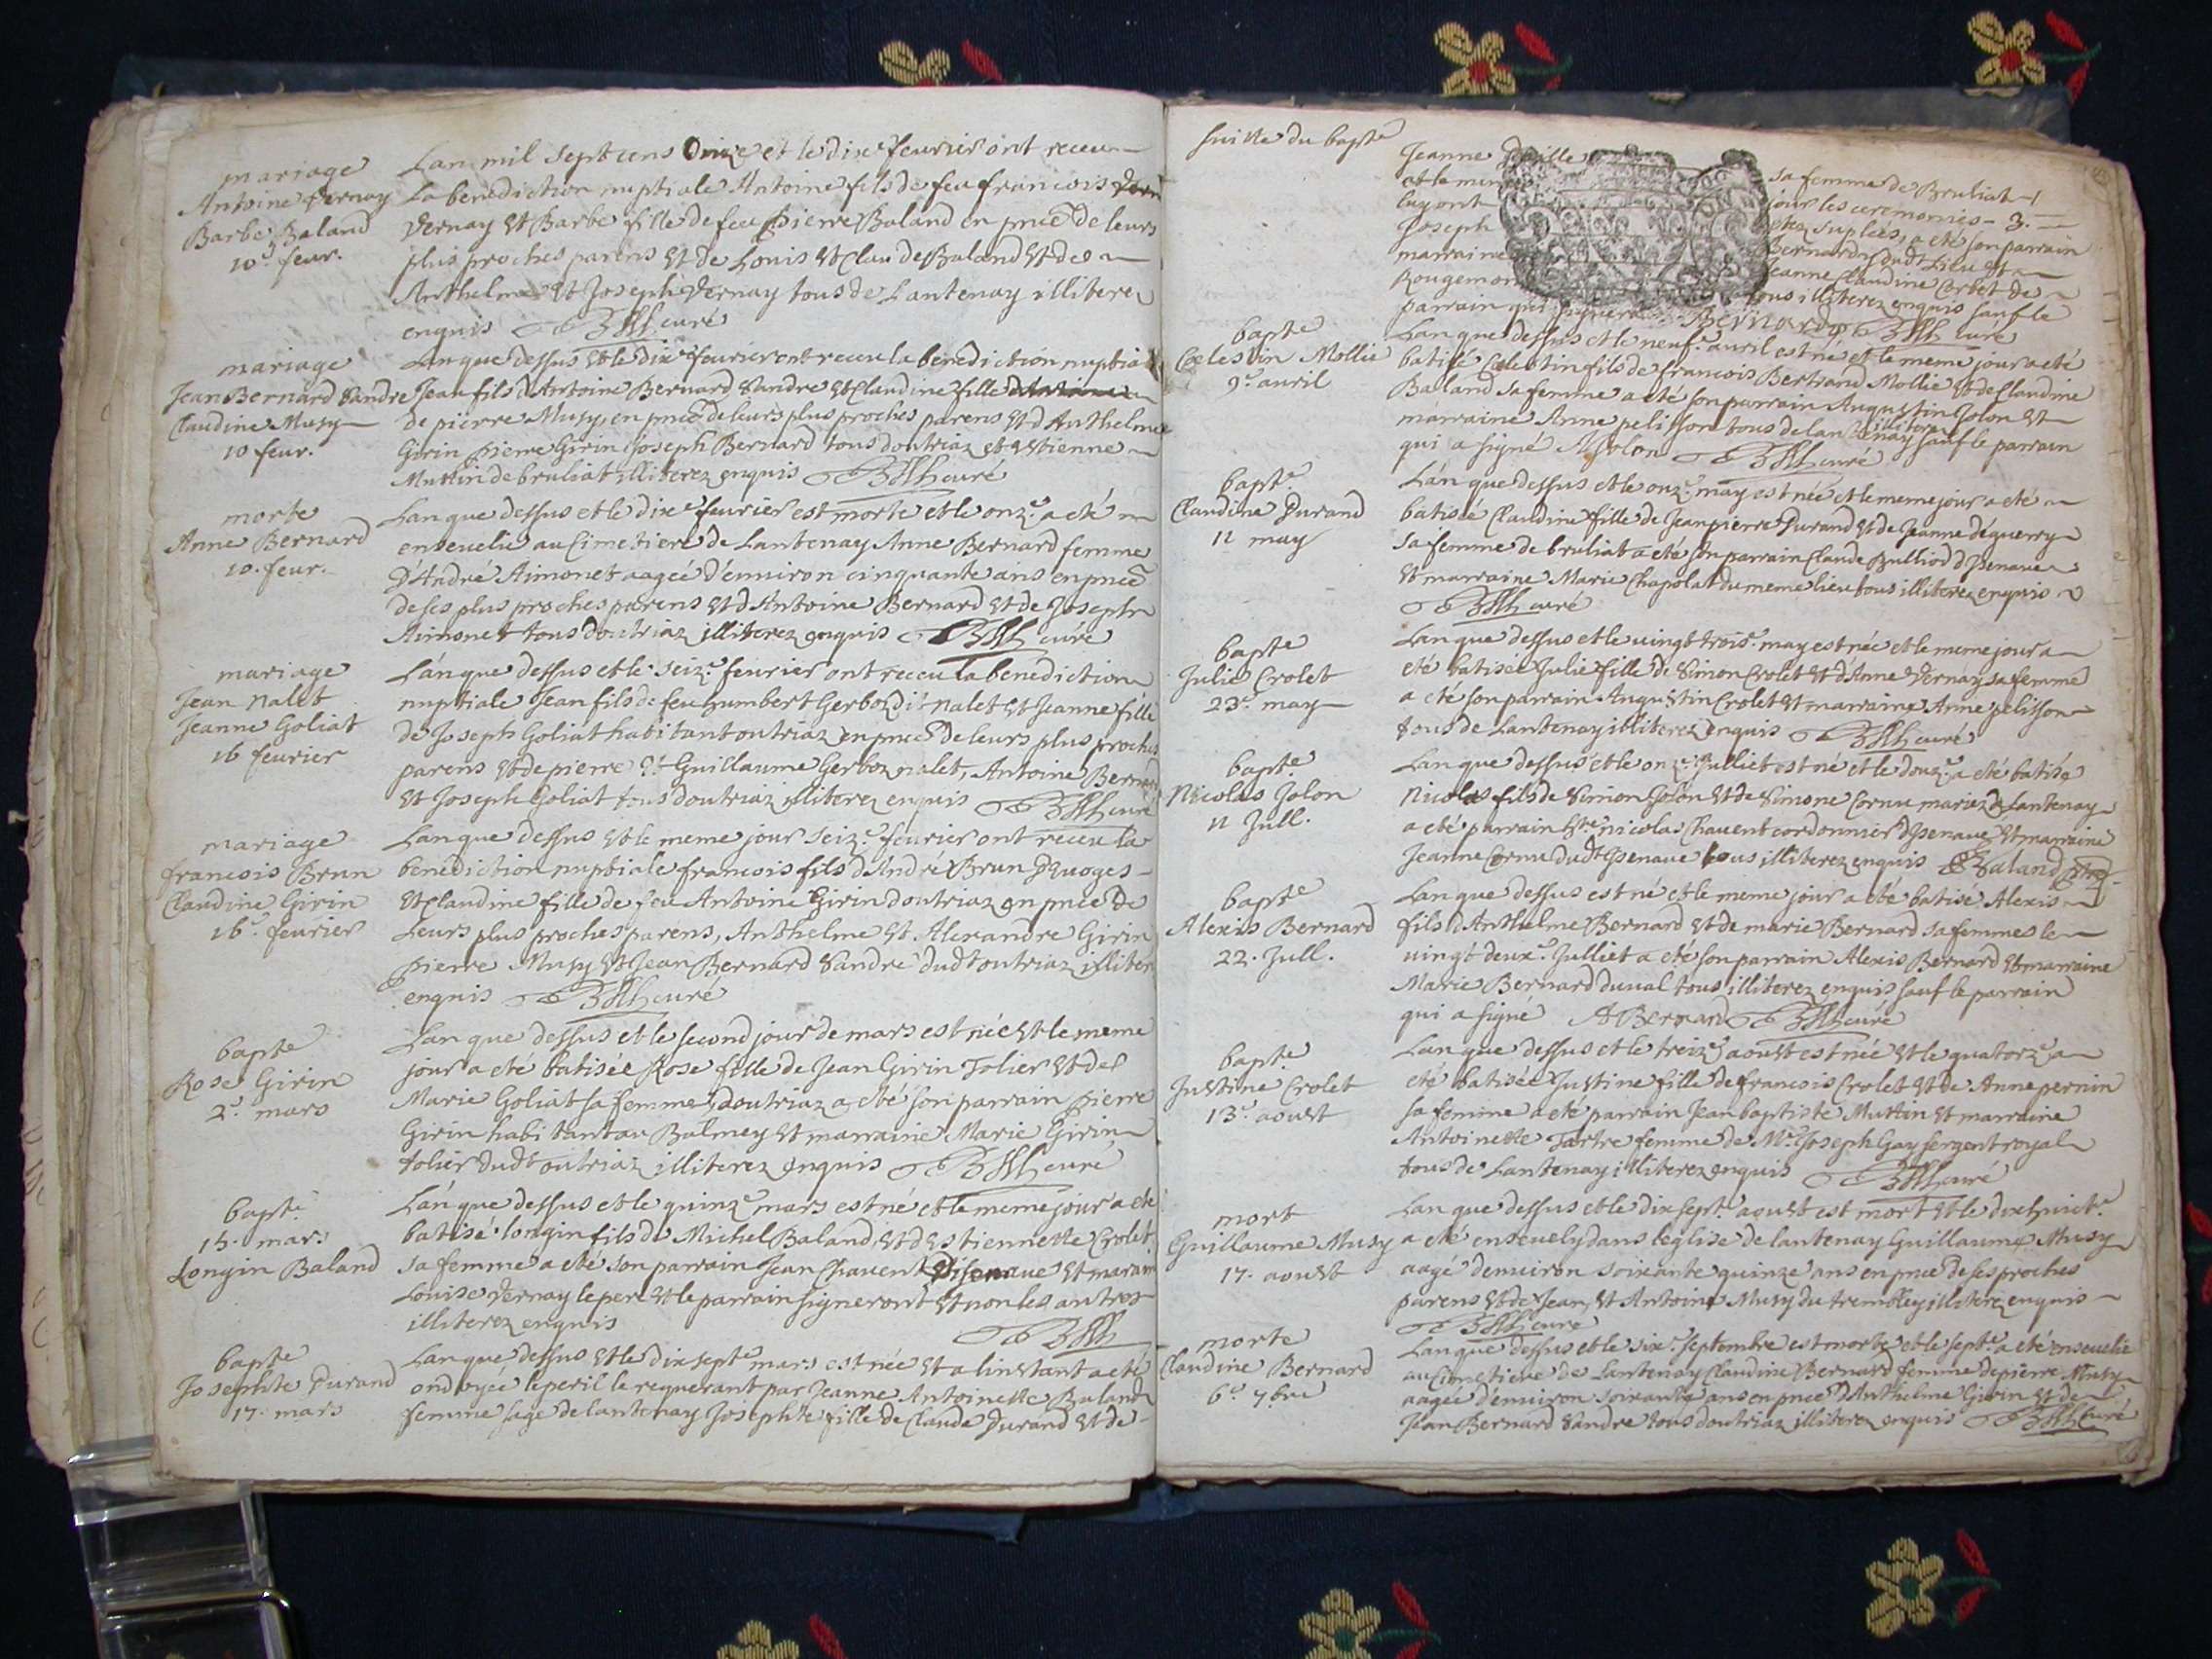 mariage
Antoine Vernay
Barbe Baland
10.e feur.
Lan mil sept cens Onze et le dix.e feurier ont receu
La benediction nuptiale Antoine fils de feu francois
Vernay et Barbe fille de feu Pierre Baland en pnce de leurs
plus proches parens et de Louis et Claude Baland et des
Anthelme et Joseph Vernay tous de Lantenay illiterez
enquis curé
mariage
Jean Bernard Sandre
Claudine Musy
10 feur.
Lan que dessus et le dix.e feurier ont receu la benediction nuptiale
Jean fils d'Antoine Bernard Sandre et Claudine fille
de pierre Musy en pnce de leurs plus proches parens et d'Anthelme
Girin pierre Girin Joseph Bernard tous doutriaz et Estienne
Muttin de bruliat illiterez enquis curé
morte
Anne Bernard
10. feur.
Lan que dessus et le dix.e feurier est morte et le onz.e a eté
enseuelie au Cimetiere de Lantenay Anne Bernard femme
D'André Aimonet aagée d'enuiron cinquante ans en pnce
de ses plus proches parens et d'Antoine Bernard et de Joseph
Aimonet tous doutriaz illiterez enquis curé
mariage
Jean Nalet
Jeanne Goliat
16 feurier
Lan que dessus et le seiz.e feurier ont receu la benediction
nuptiale Jean fils de feu humbert Gerboz dit nalet et Jeanne fille
de Joseph Goliat habitant outriaz en pnce de leurs plus proches
parens et de pierre et Guillaume Gerboz nalet, Antoine Bernard
et Joseph Goliat tous doutriaz illiterez enquis curé
mariage
francois Brun
Claudine Girin
16.e feurier
Lan que dessus et le meme jour seiz.e feurier ont receu la
benediction nuptiale francois fils d'André Brun D'Euoges
et Claudine fille de feu Antoine Girin doutriaz en pnce de
Leurs plus proches parens, Anthelme et Alexandre Girin
Pierre Musy et Jean Bernard Sandre dudt outriaz illiter
enquis curé
bapt.e
Rose Girin
2.e mars
Lan que dessus et le second jour de mars est née et le meme
jour a eté batisée Rose fille de Jean Girin Tolier et de
Marie Goliat sa femme, doutriaz a eté son parrain pierre
Girin habitant au Balmey et marraine Marie Girin
tolier dudt outriaz illiterez enquis curé
bapt.e
15. mars
Longin Baland
Lan que dessus et le quinz.e mars est né et le meme jour a eté
batisé longin fils de Michel Baland, et d'Estiennette Crolet
sa femme a eté son parrain Jean Chauent D'isenaue et maraine
Louise Vernay le pere et le parrain signeront et non les autres
illiterez enquis
bapt.e
Josephte Durand
17. mars
Lan que dessus et le dix sept.e mars est née et a linstant a eté
ondoyée le peril le requerant par Jeanne Antoinette Baland
femme sage de lantenay Josephte fille de Claude Durand et de
suitte du bapt.e
Jeanne
sa femme de Bruliat
et le
jour les ceremonies 3.
luy ont
suplées, a eté son parrain
Joseph
Bernard dudt Lieu et
marraine
Jeanne Claudine Corbet de
Rougemont
tous illiterez enquis sauf le
parrain qui signera Bernard curé
bapt.e
Cœlestin Mollie
9.e auril
Lan que dessus et le neuf.e auril est né et le meme jour a eté
batisé Cœlestin fils de francois Bertrand Mollie et de Claudine
Baland sa femme a eté son parrain Augustin Jolon et
marraine Anne pelisson tous de lantenay illiterez sauf le parrain
qui a signé A Jolon curé
bapt.e
Claudine Durand
11 may
Lan que dessus et le onz.e may est née et le meme jour a eté
batisée Claudine fille de Jean pierre Durand et de Jeanne déguerry
sa femme de bruliat a eté son parrain Claude Bulliod d'Isenaue
et marraine Marie Chapolat du meme lieu tous illiterez enquis
curé
bapt.e
Julie Crolet
23.e may
Lan que dessus et le uingt trois.e may est née et le meme jour a
eté batisée Julie fille de Simon Crolet et d'Anne Vernay sa femme
a eté son parrain Augustin Crolet et marraine Anne pelisson
tous de Lantenay illiterez enquis curé
bapt.e
Nicolas Jolon
11 Jull.
Lan que dessus et le onz.e Julliet est né et le douz.e a eté batisé
Nicolas fils de Simon Jolon et de Simone Cornu mariez de Lantenay
a eté parrain nicolas Chauent cordonnier d'Isenaue et marraine
Jeanne Cornu dudt Isenaue tous illiterez enquis Baland
bapt.e
Alexis Bernard
22. Jull.
Lan que dessus est né et le meme jour a eté batisé Alexis
fils d'Anthelme Bernard et de marie Bernard sa femme le
uingt deux.e Julliet a eté son parrain Alexis Bernard et marraine
Marie Bernard duual tous illiterez enquis sauf le parrain
qui a signé A Bernard curé
bapt.e
Justine Crolet
13.e aoust
Lan que dessus et le treiz.e aoust est née et le quatorz.e a
eté batisée Justine fille de francois Crolet et de Anne pernin
sa femme a eté parrain Jean baptiste Muttin et marraine
Antoinette Tartre femme de Me Joseph Gay sergent royal
tous de Lantenay illiterez enquis curé
mort
Guillaume Musy
17. aoust
Lan que dessus et le dix sept.e aoust est mort et le dix huict.e
a eté enseuely dans l'eglise de lantenay Guillaume Musy
aagé denuiron soixante quinze ans en pnce de ses proches
parens et de Jean et Antoine Musy du trembley illiterez enquis
curé
morte
Claudine Bernard
6.e 7bre
Lan que dessus et le six.e septembre est morte et le sept.e a eté enseuelie
au Cimetiere de Lantenay Claudine Bernard femme de pierre Musy
aagée d'enuiron soixante ans en pnce d'Anthelme Girin et de
Jean Bernard Sandre tous doutriaz illiterez enquis curé